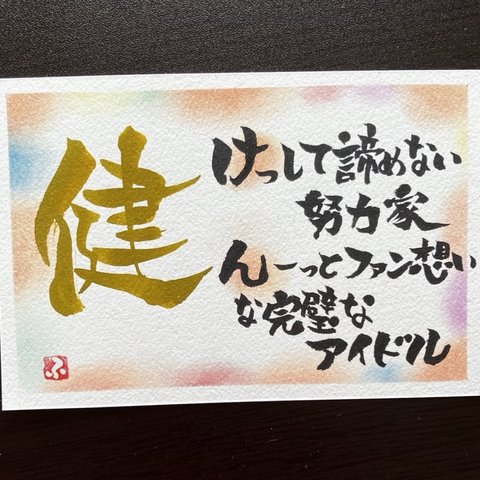 健
けっして諦めない
努力家
んーっとファン想い
な完璧な
アイドル
ふ